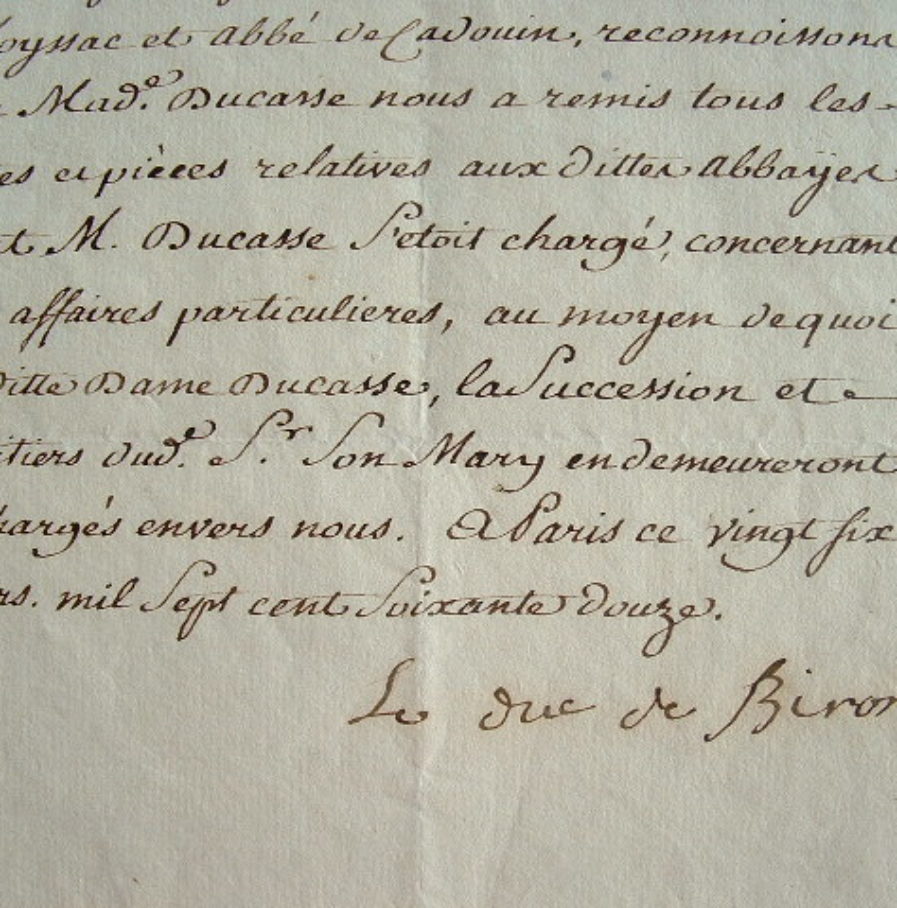 oyssac et abbé de Cadouin, reconnoissons
Mad.e Ducasse nous a remis tous les
es et pièces relatives aux dittes abbayes
t M. Ducasse s'etoit chargé, concernant
affaires particulieres, au moyen de quoi
ditte Dame Ducasse, la Succession et
itiers dud.e S.r Son Mary en demeureront
hargés envers nous. A Paris ce vingt six
rs. mil Sept cent Soixante douze.
Le duc de Biron